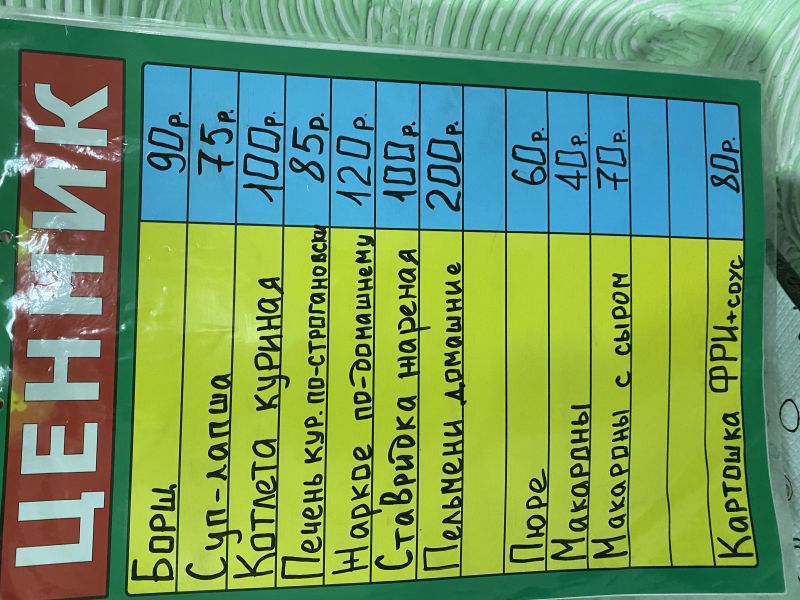 ЦЕННИК
Борщ 90р.
Суп-лапша 75р.
Котлета куриная 100р.
Печень кур. по-строгановски 85р.
Жаркое по-домашнему 120р.
Ставридка жареная 100р.
Пельмени домашние 200р.
Пюре 60р.
Макароны 40р.
Макароны с сыром 70р.
Картошка ФРИ+соус 80р.